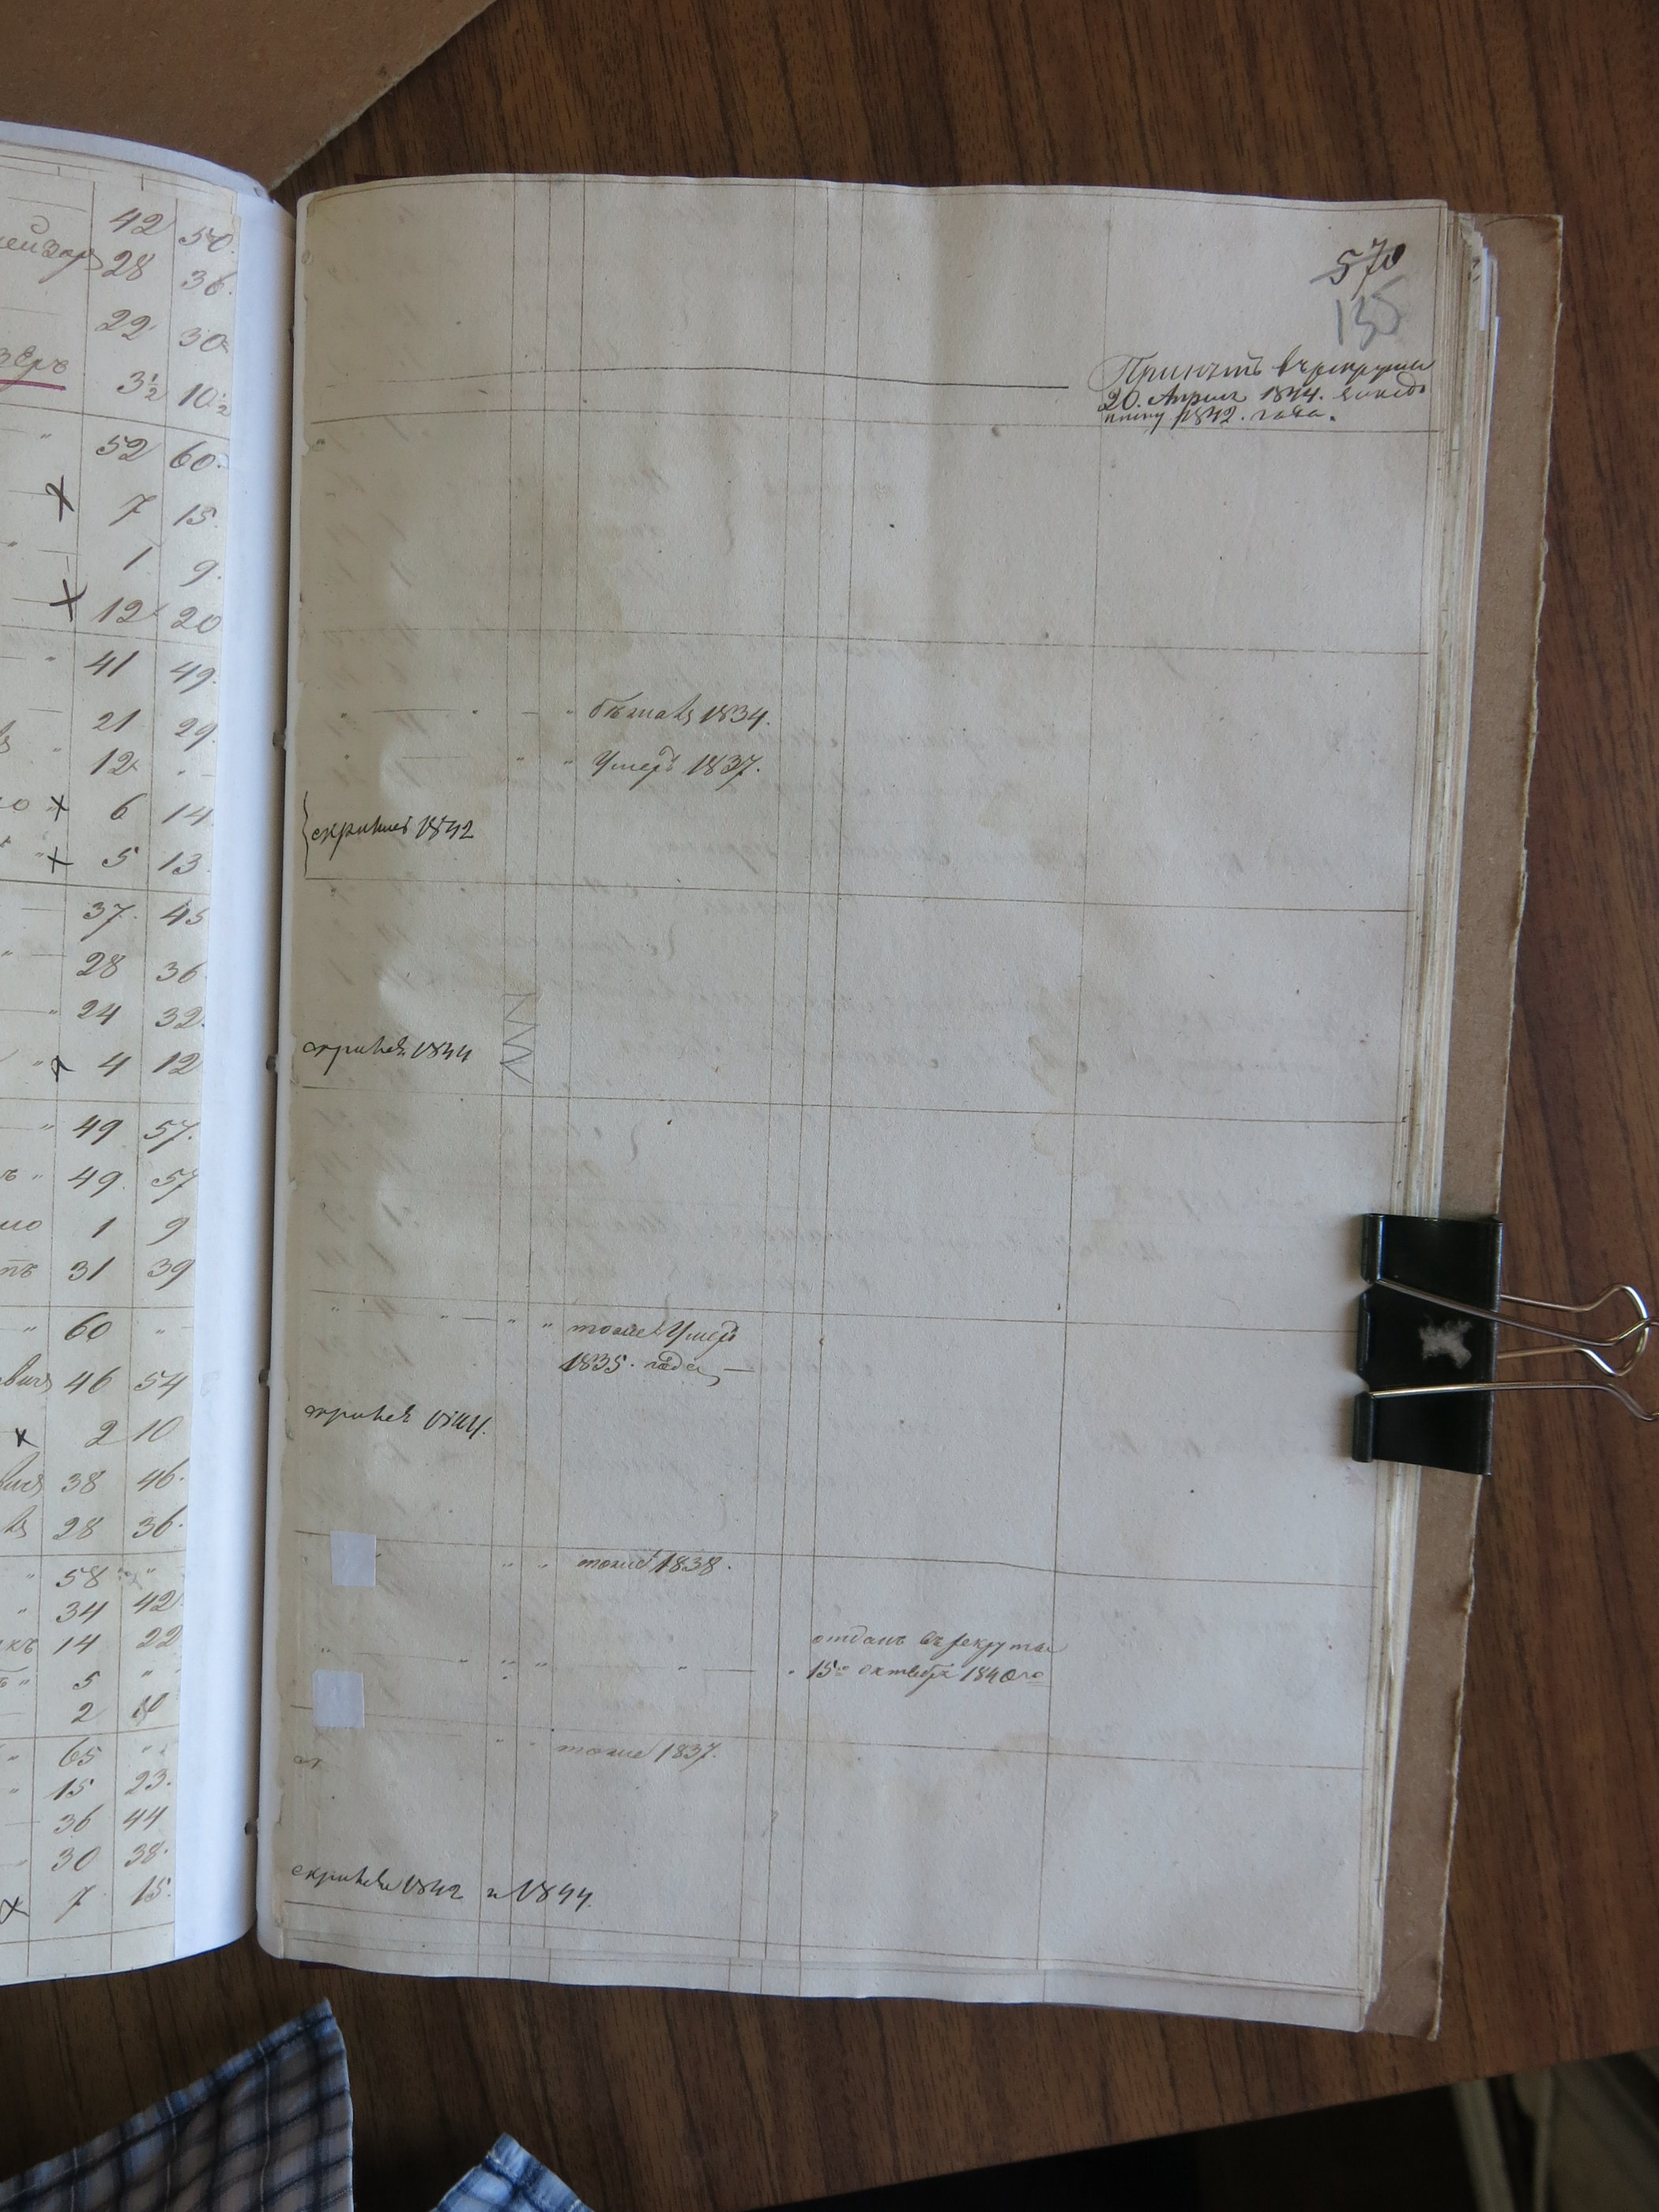 42 50.
28 36.
22 30
3½ 10½
52 60.
х 7 15.
1 9.
х 12 20
41 49.
21 29.
12
х 6 14
х 5 13.
37. 45
28 36
24 32.
х 4 12
49 57.
49. 57
1 9
31 39
60
46 54
х 2 10
38 46.
28 36.
58
34 42
14 22
5
2 10
65
15 23.
36 44
30 38.
х 7 15.
570
135
Принятъ въ рекруты
20. Апреля 1844.
1842. года.
бежалъ 1834.
Умеръ 1837.
1842
1844
тоже Умеръ
1835. года
1844.
тоже 1838.
отданъ въ рекруты
15го октября 1840го
тоже 1837.
1842 и 1844.